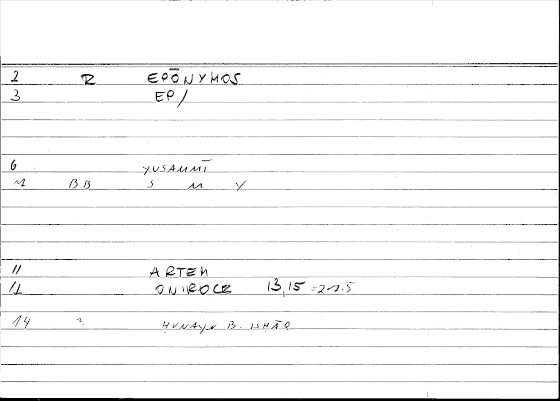 2 R EPŌNYMOS
3 EP/
6 YUSAMMĪ
M BB S M Y
11 ARTEM
12 ONIROCR 13,15 = 21.5
14 ḤUNAYN B. ISḤĀQ